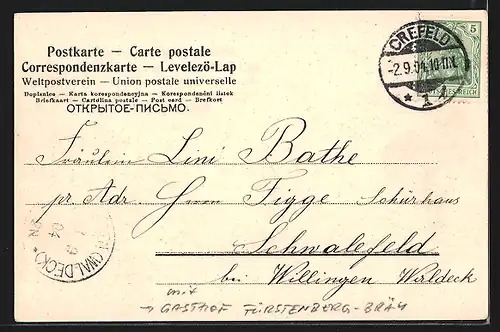 Postkarte — Carte postale
Correspondenzkarte — Levelező-Lap
Weltpostverein — Union postale universelle
Dopisnice — Karta korespondencyjna — Korespondenční lístek
Briefkaart — Cartolina postale — Post card — Brefkort
ОТКРЫТОЕ-ПИСЬМО.
CREFELD
-2.9.04.10-11.V.
* 1
5
DEUTSCHES REICH
Fräulein Lini Bathe
pr. Adr. Herrn Figge Schürhaus
Schwalefeld
bei Willingen Waldeck
(WALDECK)*
mit
→ GASTHOF FÜRSTENBERG-BRÄU